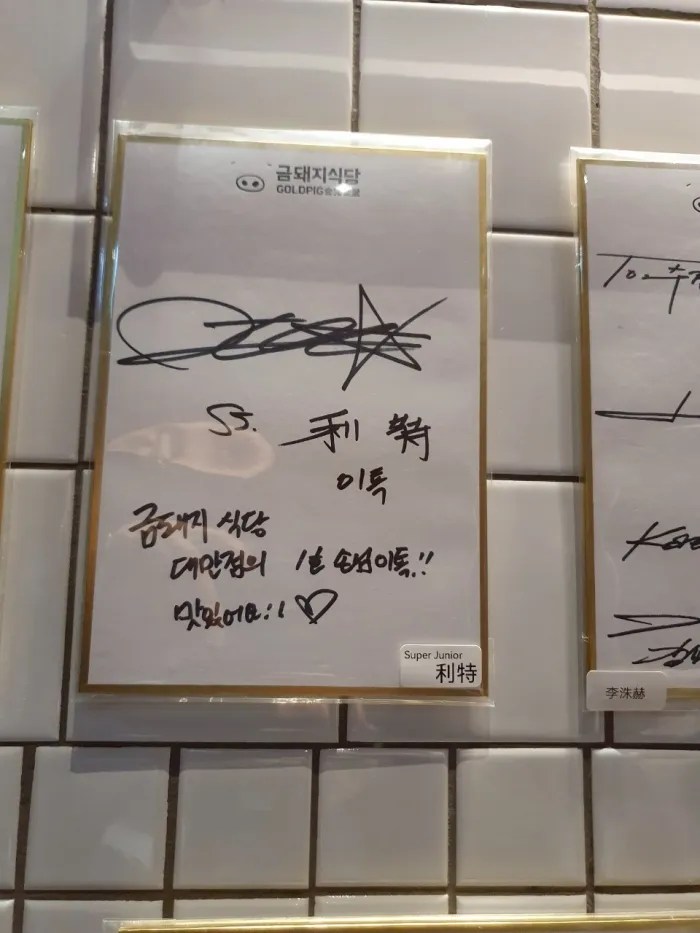 금돼지식당
GOLDPIG
SJ. 利特
이특
금돼지 식당
대만점의 1호 손님이특!!
맛있어요!! ♡
Super Junior
利特
李洙赫